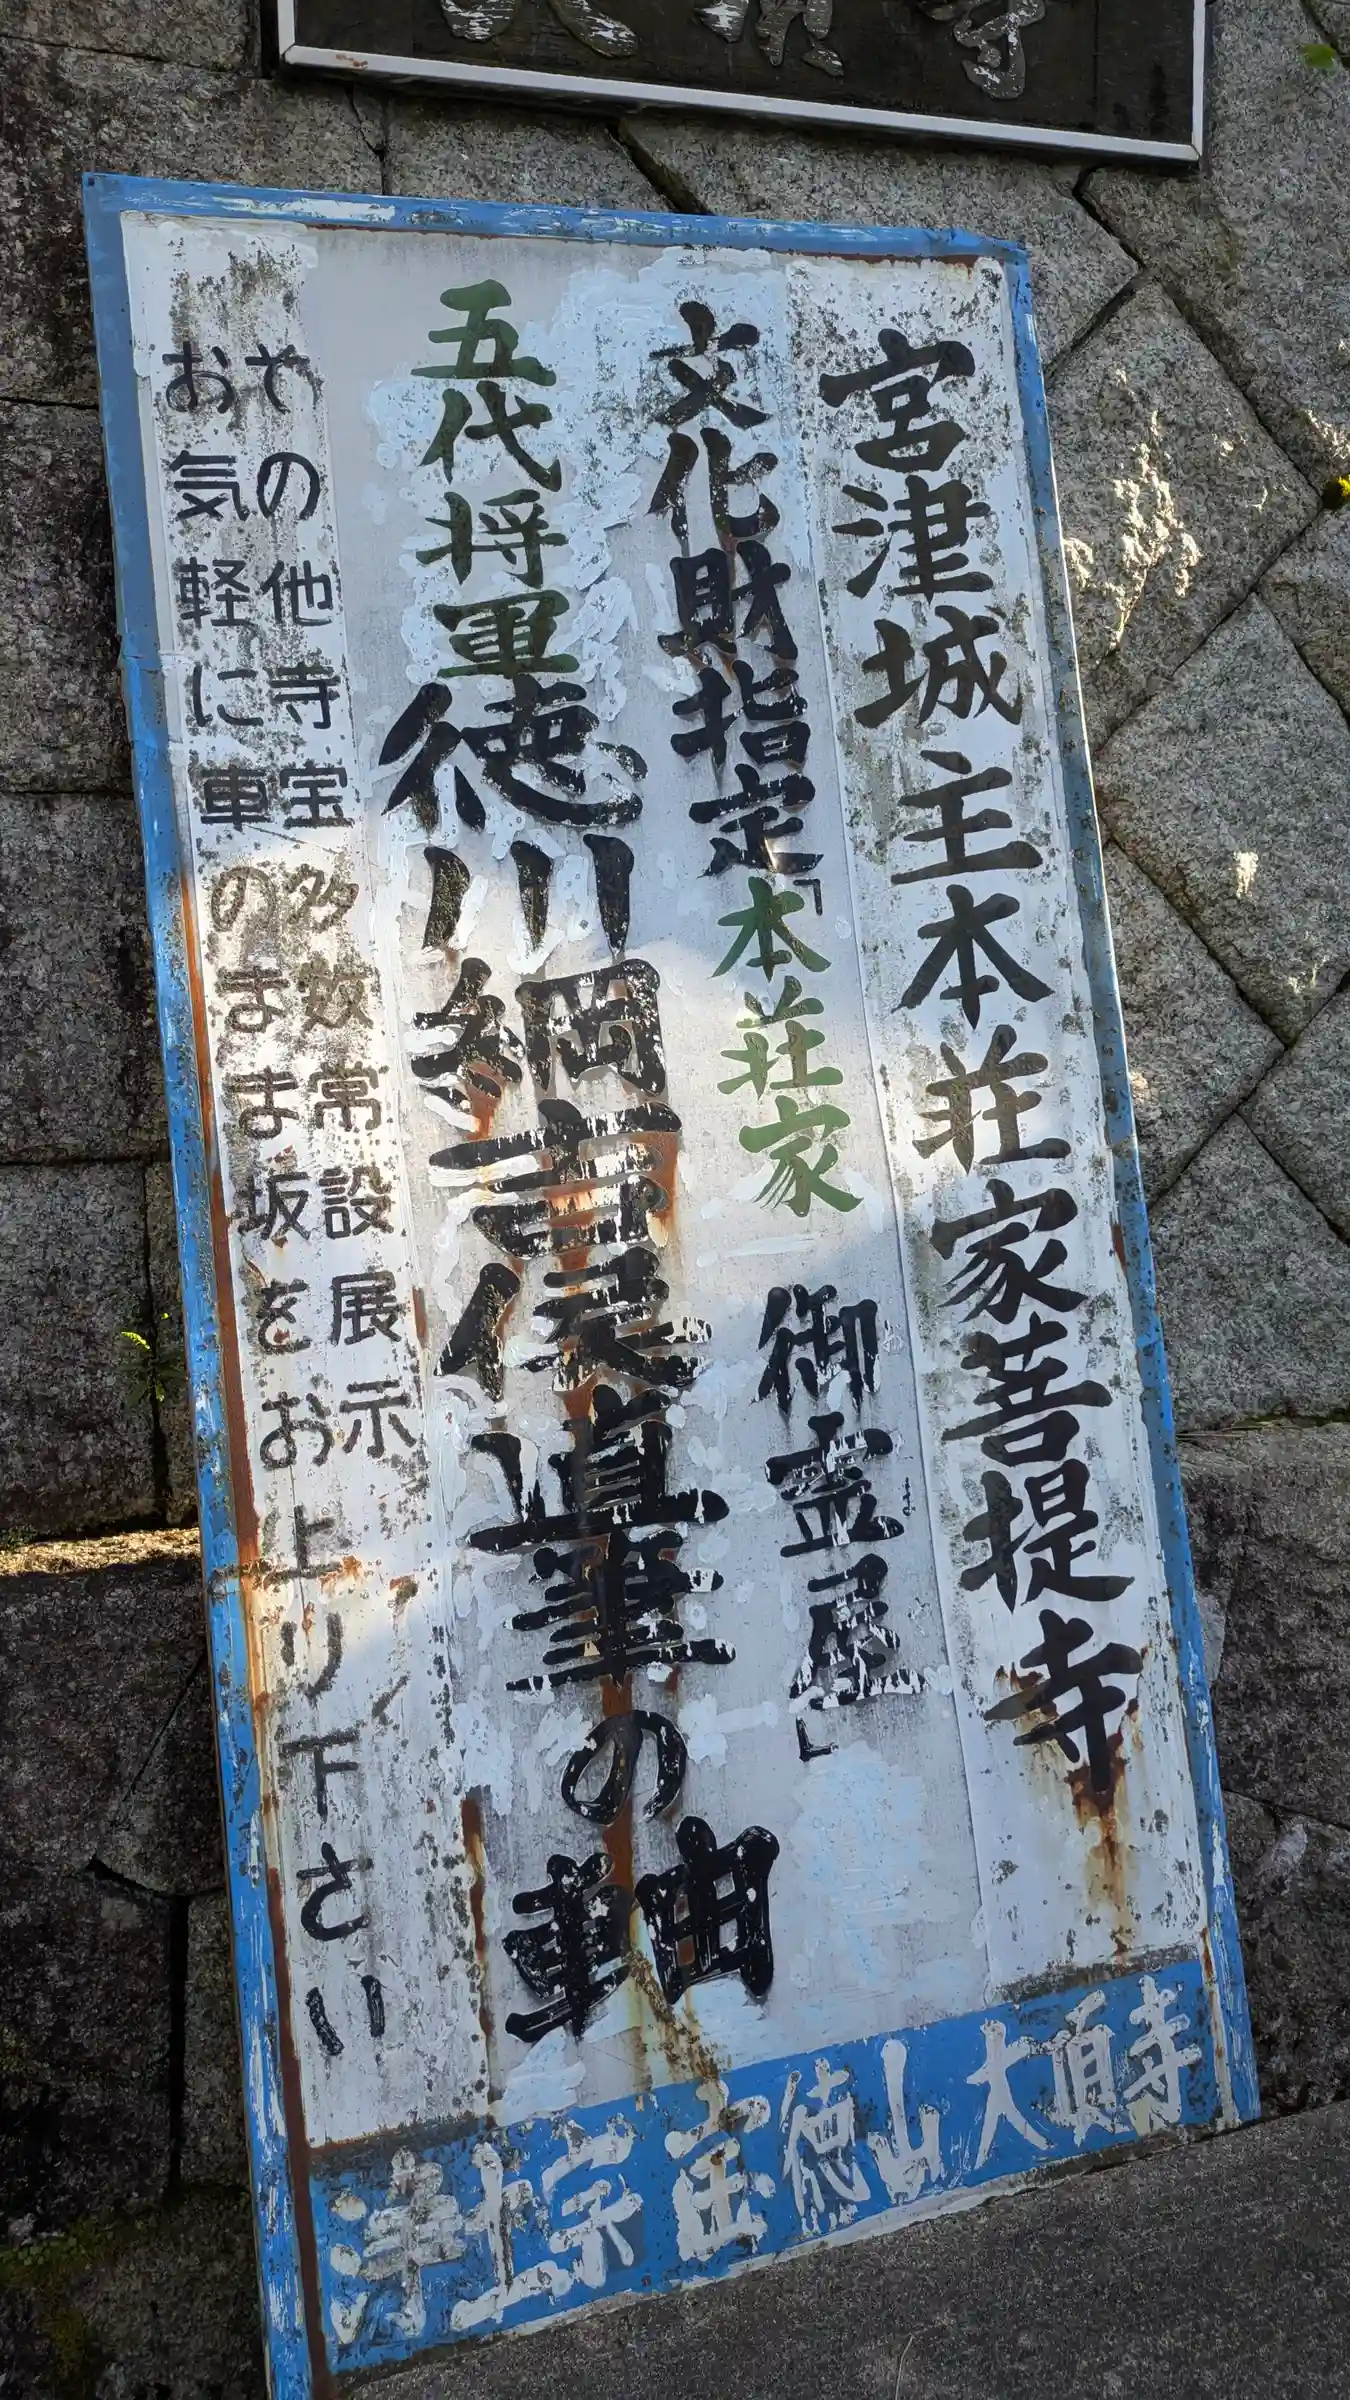 大頂寺
宮津城主本荘家菩提寺
文化財指定「本荘家 御霊屋」
五代将軍徳川綱吉侯直筆の軸
その他寺宝多数常設展示
お気軽に車のままま坂をお上り下さい
浄土宗 宝徳山大頂寺